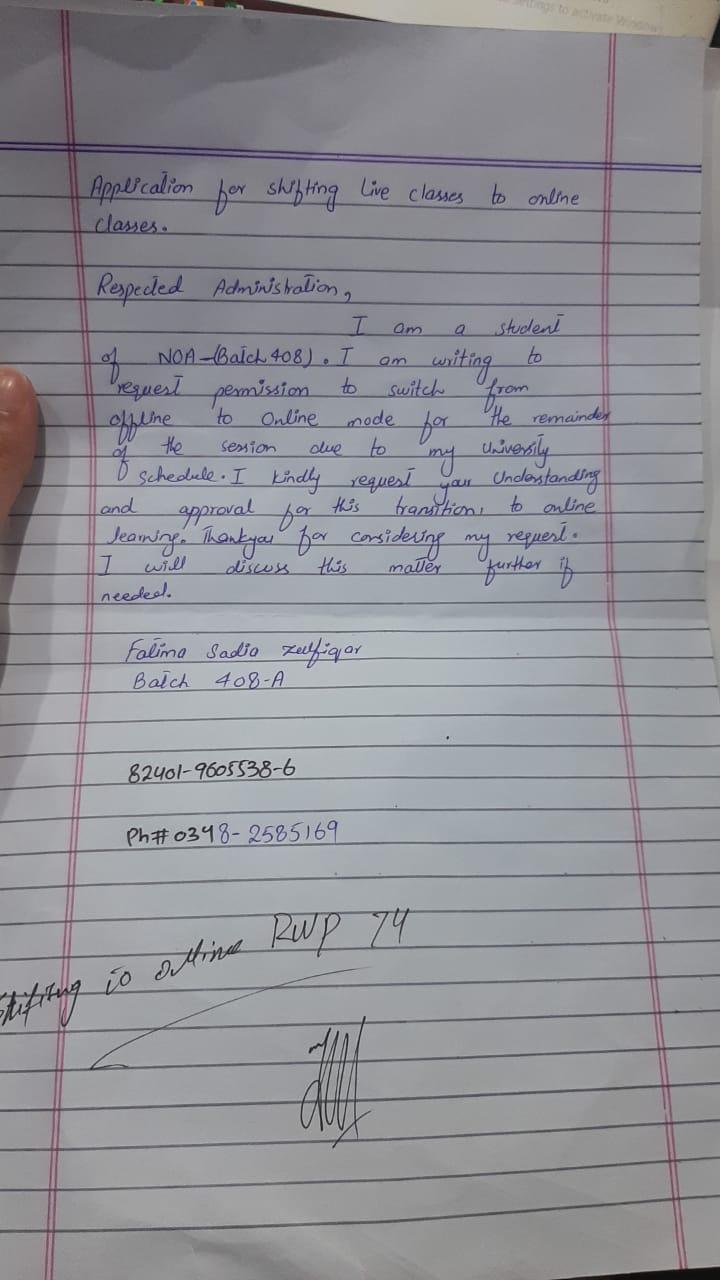 settings to activate Windows
Application for shifting Live classes to online
classes.
Respected Administration,
I am a student
of NOA-(Batch 408). I am writing to
request permission to switch from
offline to Online mode for the remainder
of the session due to my University
schedule. I kindly request your Understanding
and approval for this transition, to online
learning. Thankyou for considering my request.
I will discuss this matter further if
needed.
Fatima Sadia Zulfiqar
Batch 408-A
82401-9605538-6
Ph# 0348-2585169
Shifting to online RWP 74